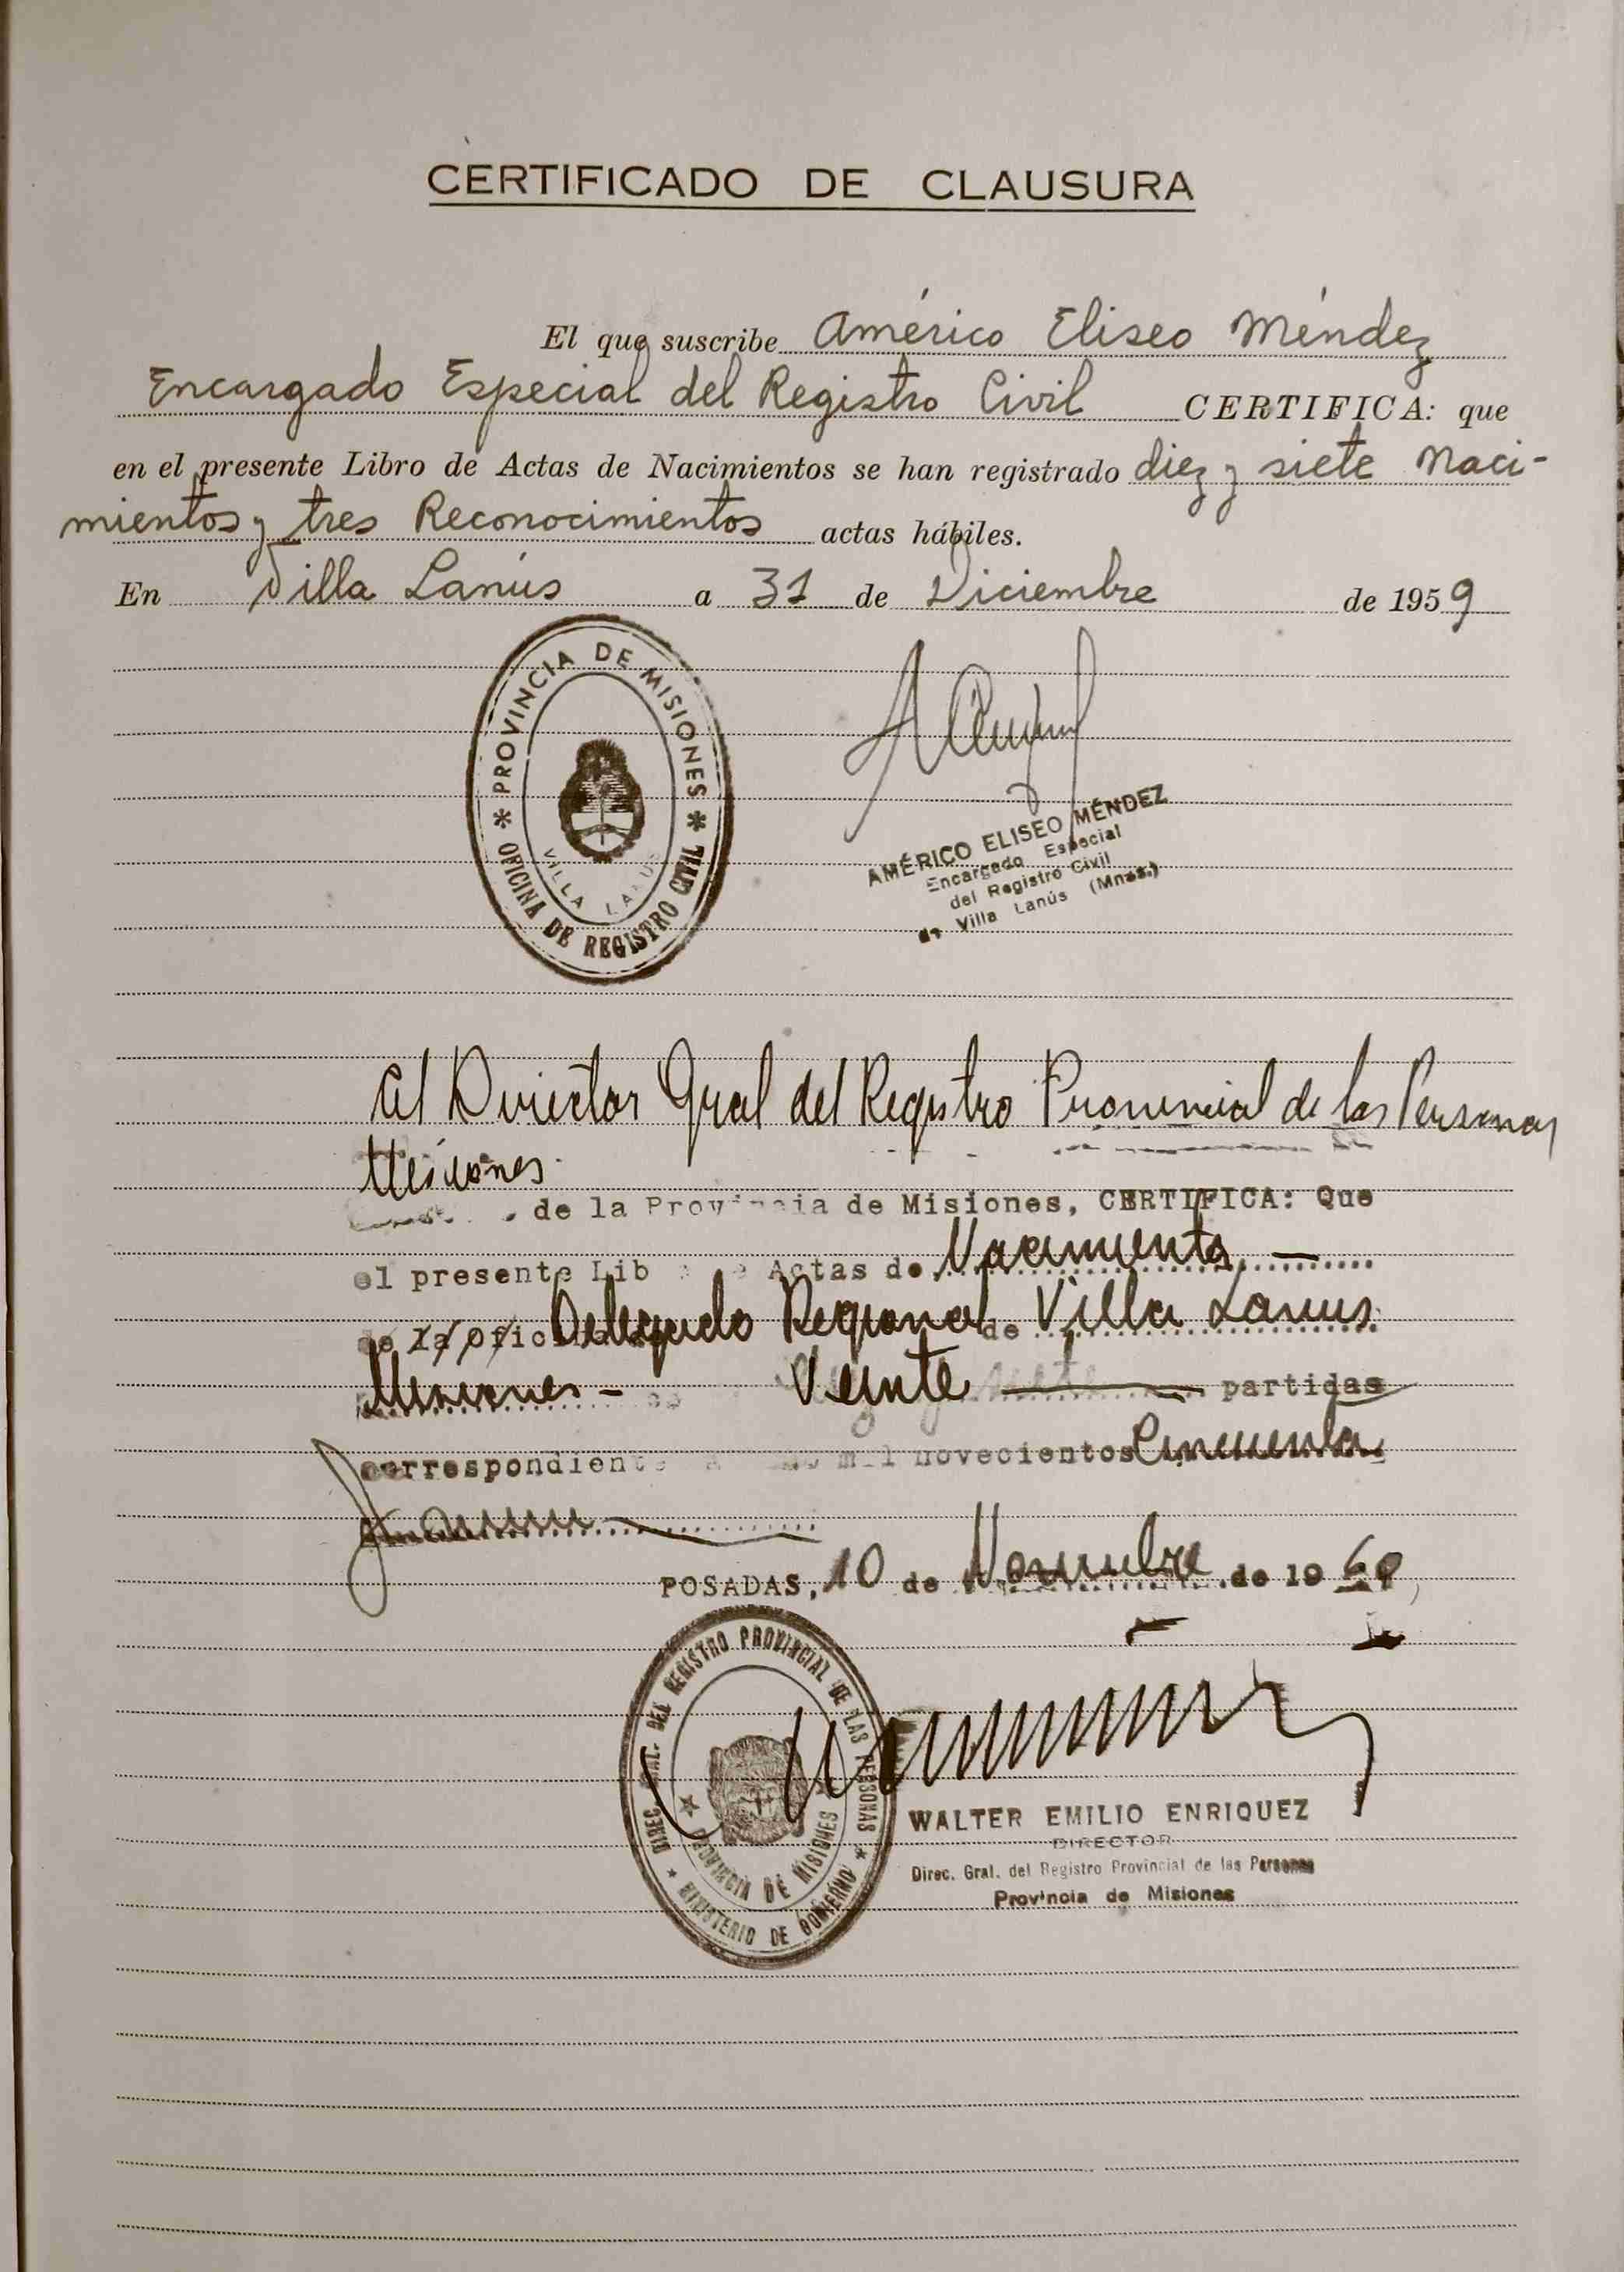 CERTIFICADO DE CLAUSURA
El que suscribe Américo Eliseo Méndez
Encargado Especial del Registro Civil CERTIFICA: que
en el presente Libro de Actas de Nacimientos se han registrado diez y siete Naci-
mientos y tres Reconocimientos actas hábiles.
En Villa Lanús a 31 de Diciembre de 1959
PROVINCIA DE MISIONES
OFICINA DE REGISTRO CIVIL
VILLA LANUS
AMÉRICO ELISEO MÉNDEZ
Encargado Especial
del Registro Civil
de Villa Lanús (Mnes.)
El Director Gral del Registro Provincial de las Personas
Misiones
de la Provincia de Misiones, CERTIFICA: Que
el presente Lib Actas de Nacimiento
de la Ofic Delegado Regional de Villa Lanus
Misiones - Veinte partidas
correspondiente mil novecientos Cincuenta
POSADAS, 10 de Noviembre de 1960
DIREC. GRAL. DEL REGISTRO PROVINCIAL DE LAS PERSONAS
PROVINCIA DE MISIONES
MINISTERIO DE GOBIERNO
WALTER EMILIO ENRIQUEZ
DIRECTOR
Direc. Gral. del Registro Provincial de las Personas
Provincia de Misiones